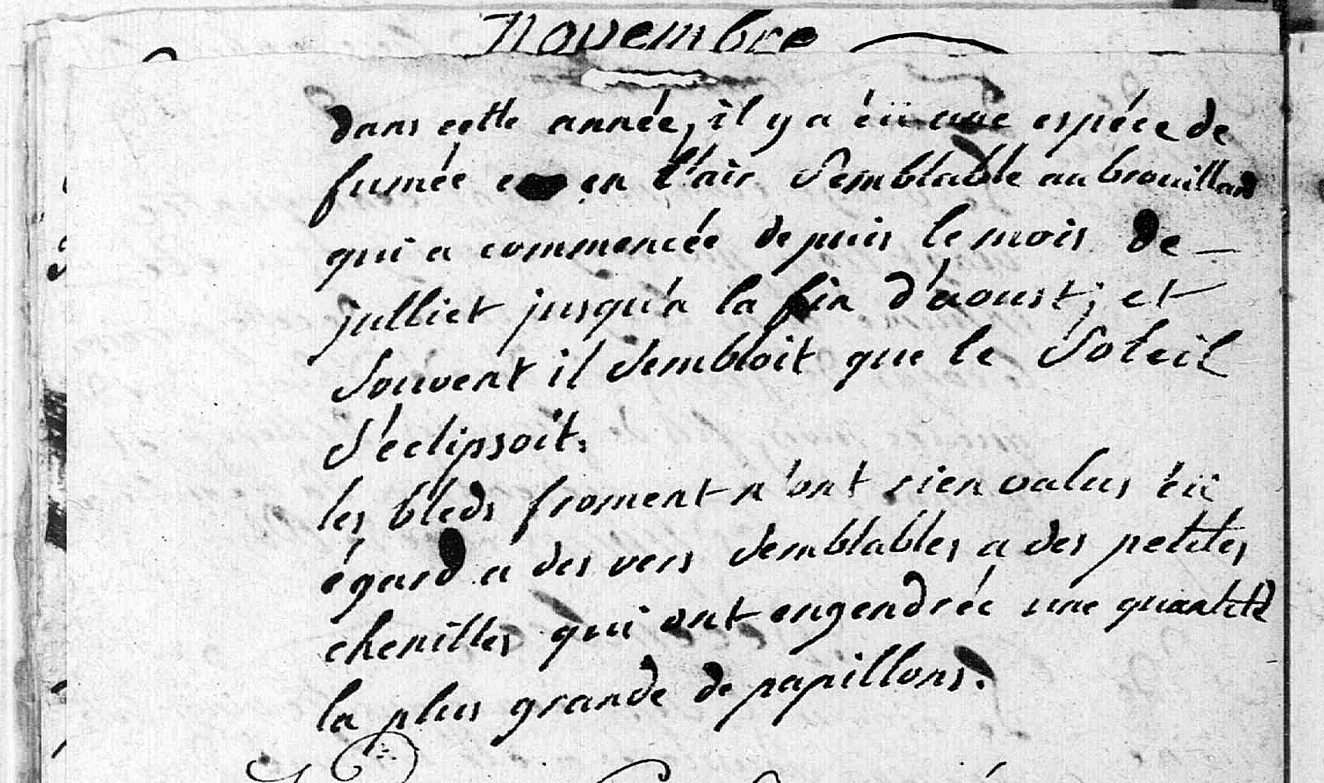 Novembre
dans cette année, il y a éü une espéce de
fumée en l'air Semblable au brouillard
qui a commencée depuis le mois de
julliet jusqu'a la fin d'aoust; et
Souvent il Sembloit que le Soleil
S'eclipsoit.
les bleds froment n'ont rien valus éü
égard a des vers Semblables a des petites
chenilles qui ont engendrée une quantité
la plus grande de papillons.